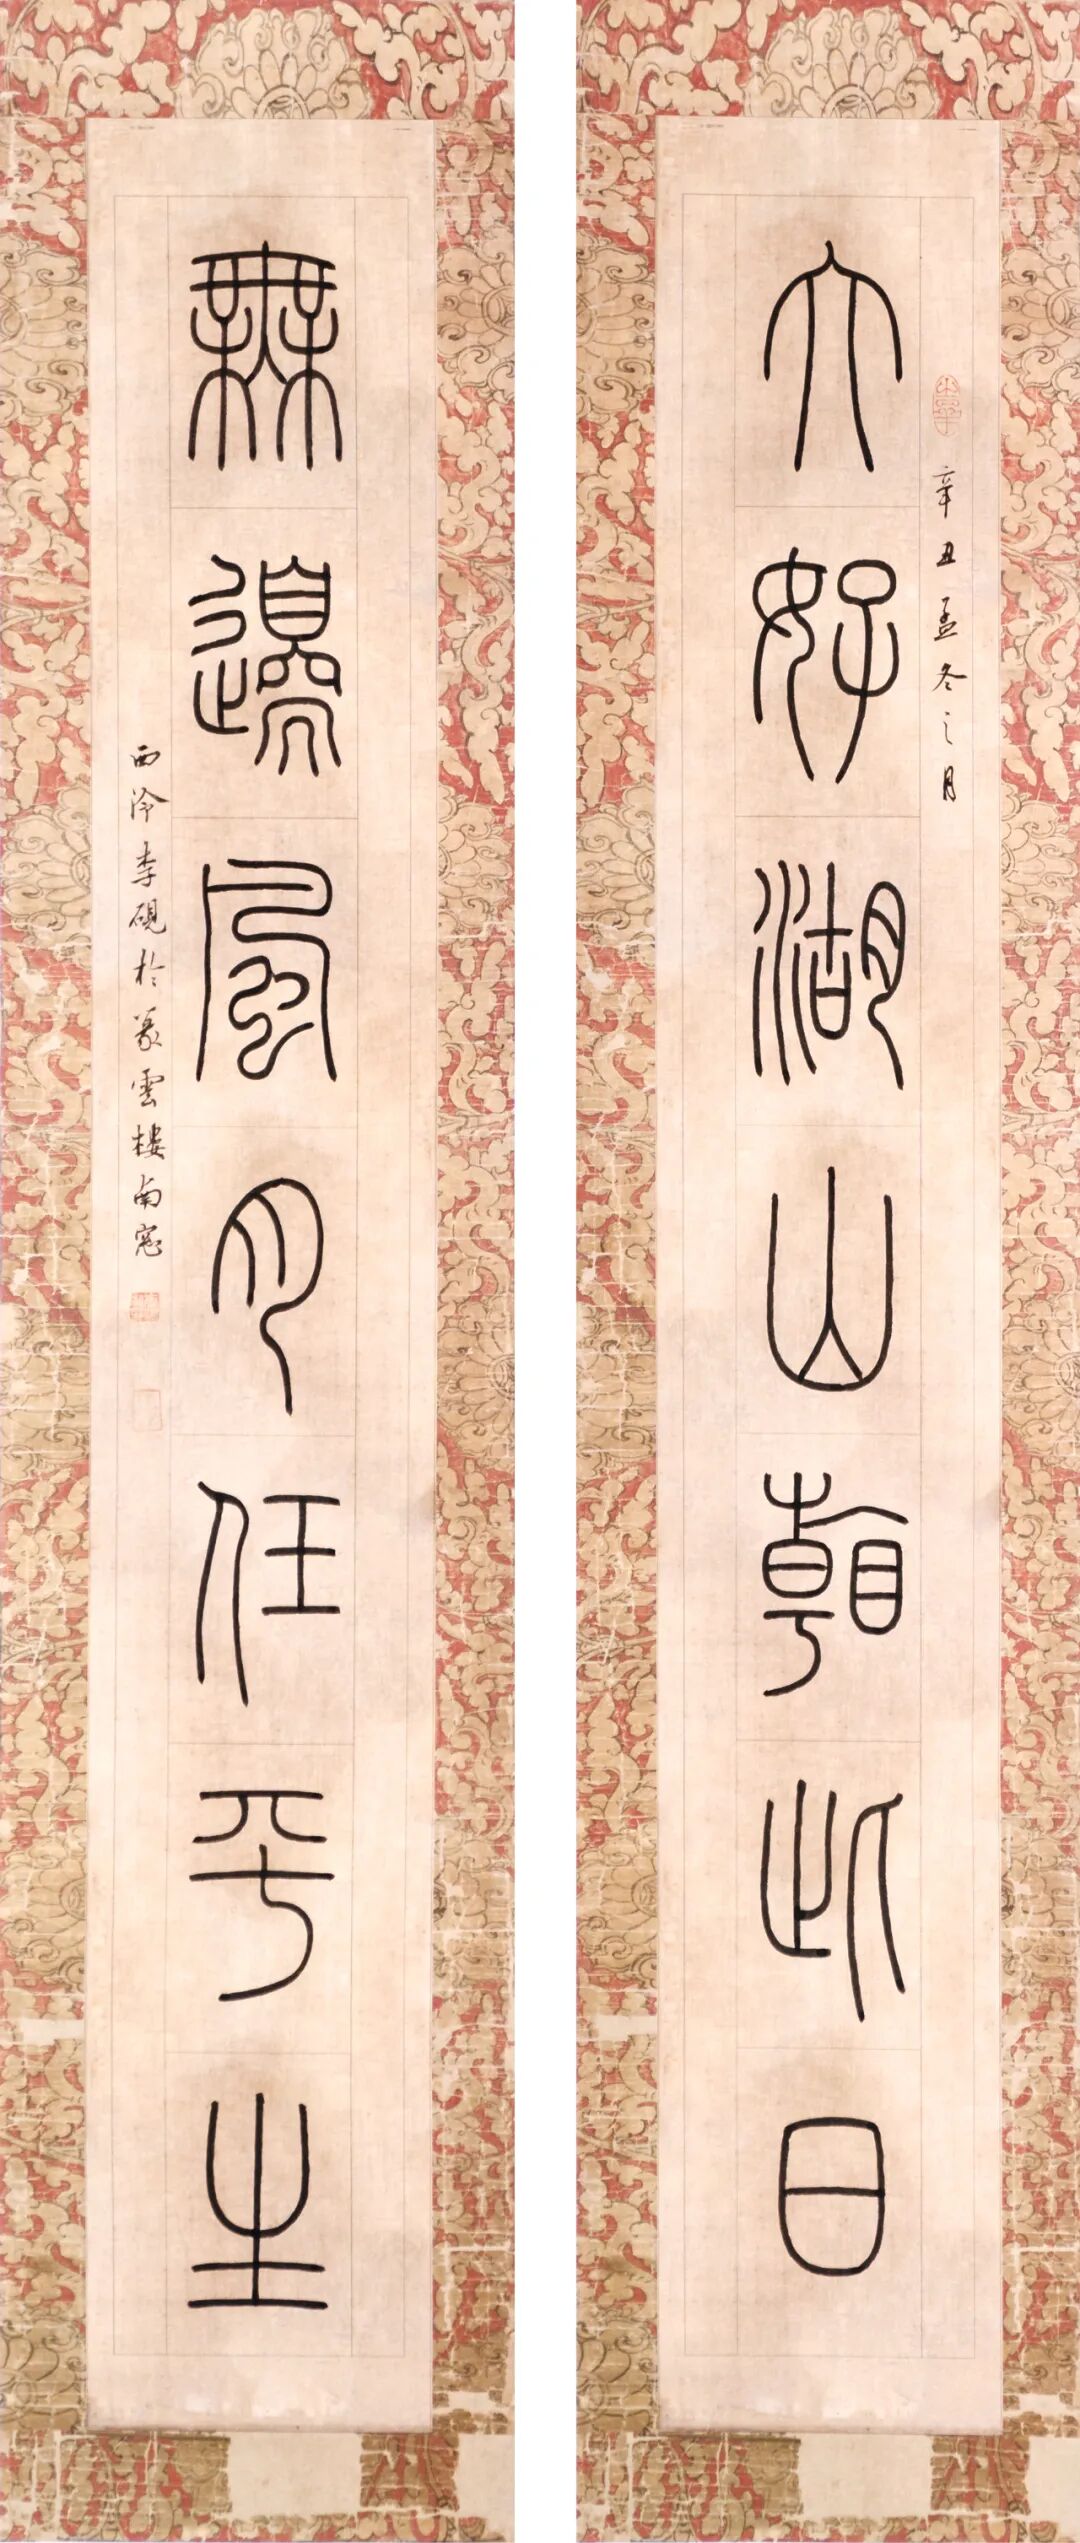 辛丑孟冬之月
大好湖山朝此日
無邊風月任平生
西泠李硯於篆雲樓南窓